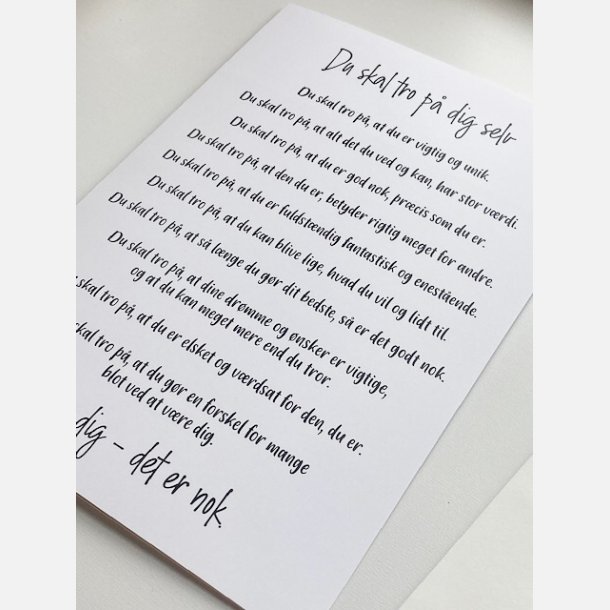 Du skal tro på dig selv
Du skal tro på, at du er vigtig og unik.
Du skal tro på, at alt det du ved og kan, har stor værdi.
Du skal tro på, at du er god nok, præcis som du er.
Du skal tro på, at den du er, betyder rigtig meget for andre.
Du skal tro på, at du er fuldstændig fantastisk og enestående.
Du skal tro på, at du kan blive lige, hvad du vil og lidt til.
Du skal tro på, at så længe du gør dit bedste, så er det godt nok.
Du skal tro på, at dine drømme og ønsker er vigtige,
og at du kan meget mere end du tror.
skal tro på, at du er elsket og værdsat for den, du er.
skal tro på, at du gør en forskel for mange
blot ved at være dig.
dig – det er nok.